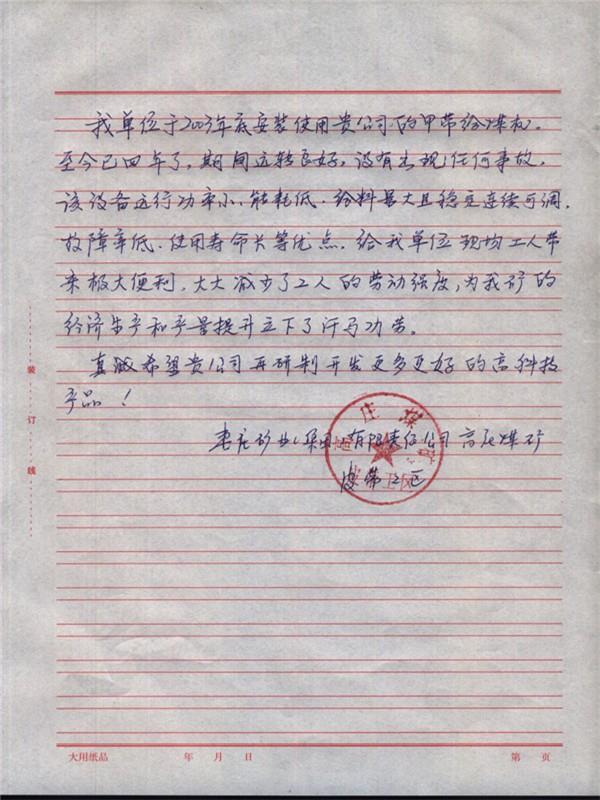 我单位于2003年底安装使用贵公司的甲带给煤机。
至今已四年了，期间运转良好，没有出现任何事故，
该设备运行功率小、能耗低、给料量大且稳定连续可调，
故障率低、使用寿命长等优点，给我单位现场工人带
来极大便利，大大减少了工人的劳动强度，为我矿的
经济生产和产量提升立下了汗马功劳。
真诚希望贵公司再研制开发更多更好的高科技
产品！
枣庄矿业集团有限责任公司高庄煤矿
皮带工区
庄煤矿
装订线
大用纸品 年 月 日 第 页